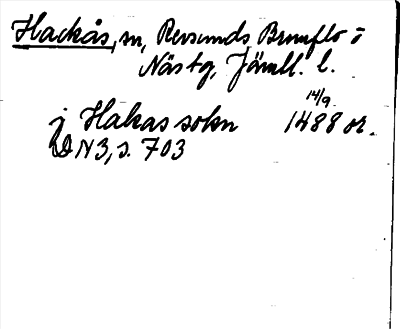 Hackås, sn, Revsunds Brunflo o
Näs tg, Jämtl. l.
j Hakas sokn 14/9 1488 or.
DN3, s. 703